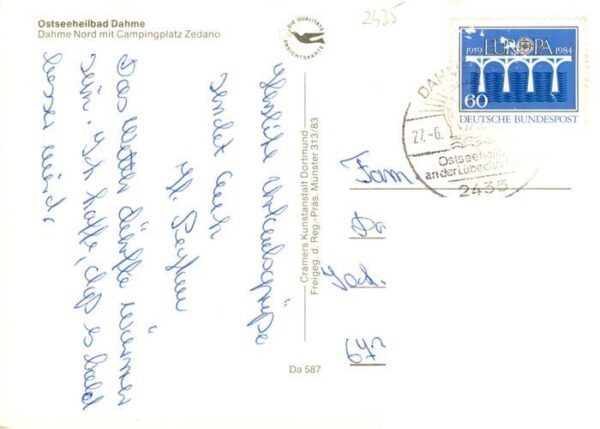 Ostseeheilbad Dahme
Dahme Nord mit Campingplatz Zedano
DIE QUALITÄTS
ANSICHTSKARTE
2435
1959 EUROPA 1984
60
DEUTSCHE BUNDESPOST
DAHME
27.-6.
Ostseeheilbad
an der Lübecker
2435
Herzliche Urlaubsgrüße
sendet euch
Das Wetter dürfte wärmer
sein. Ich hoffe, daß es bald
besser wird.
Cramers Kunstanstalt Dortmund
Freigeg. d. Reg.-Präs. Münster 313/83
Da 587
Fam.